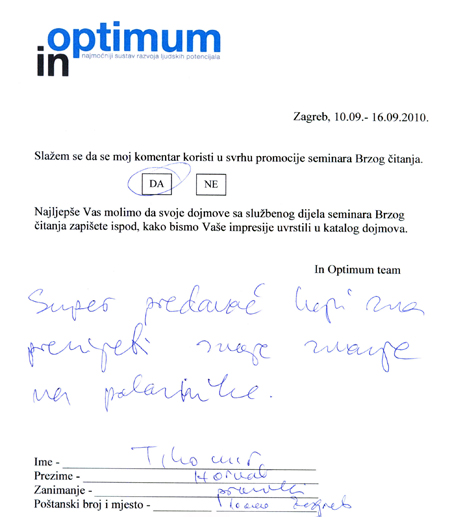 optimum
in najmoćniji sustav razvoja ljudskih potencijala
Zagreb, 10.09.- 16.09.2010.
Slažem se da se moj komentar koristi u svrhu promocije seminara Brzog čitanja.
DA NE
Najljepše Vas molimo da svoje dojmove sa službenog dijela seminara Brzog
čitanja zapišete ispod, kako bismo Vaše impresije uvrstili u katalog dojmova.
In Optimum team
Super predavač koji zna
prenijeti svoje znanje
na polaznike.
Ime - Tihomir
Prezime - Horvat
Zanimanje -
Poštanski broj i mjesto - Zagreb